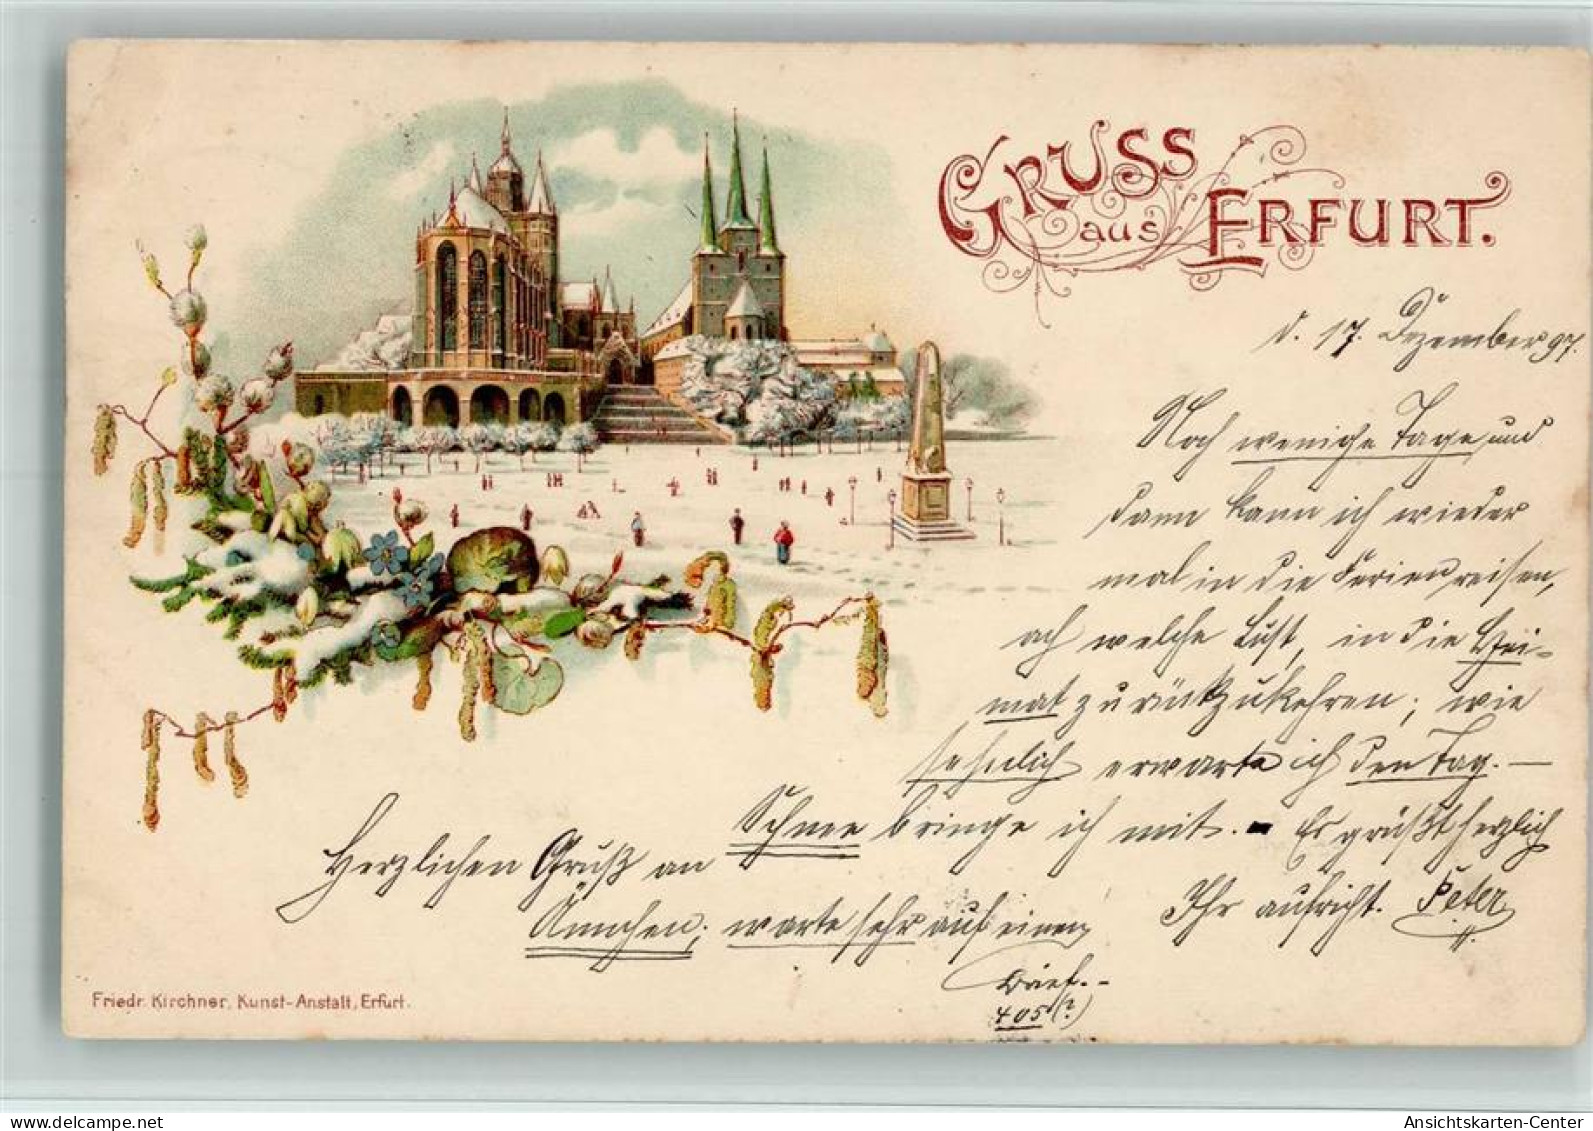 GRUSS
aus ERFURT.
d. 17. Dezember 97.
Noch wenige Tage, und
dann kann ich wieder
mal in die Ferien reisen,
ach welche Lust, in die Hei-
mat zurückzukehren; wie
sehnlich erwarte ich den Tag. —
Schnee bringe ich mit. - Es grüßt herzlich
Ihr aufricht. Peter
Herzlichen Gruß an
Ännchen; warte sehr auf einen
Brief. -
405 (?)
Friedr. Kirchner, Kunst-Anstalt, Erfurt.
delcampe.net
Ansichtskarten-Center